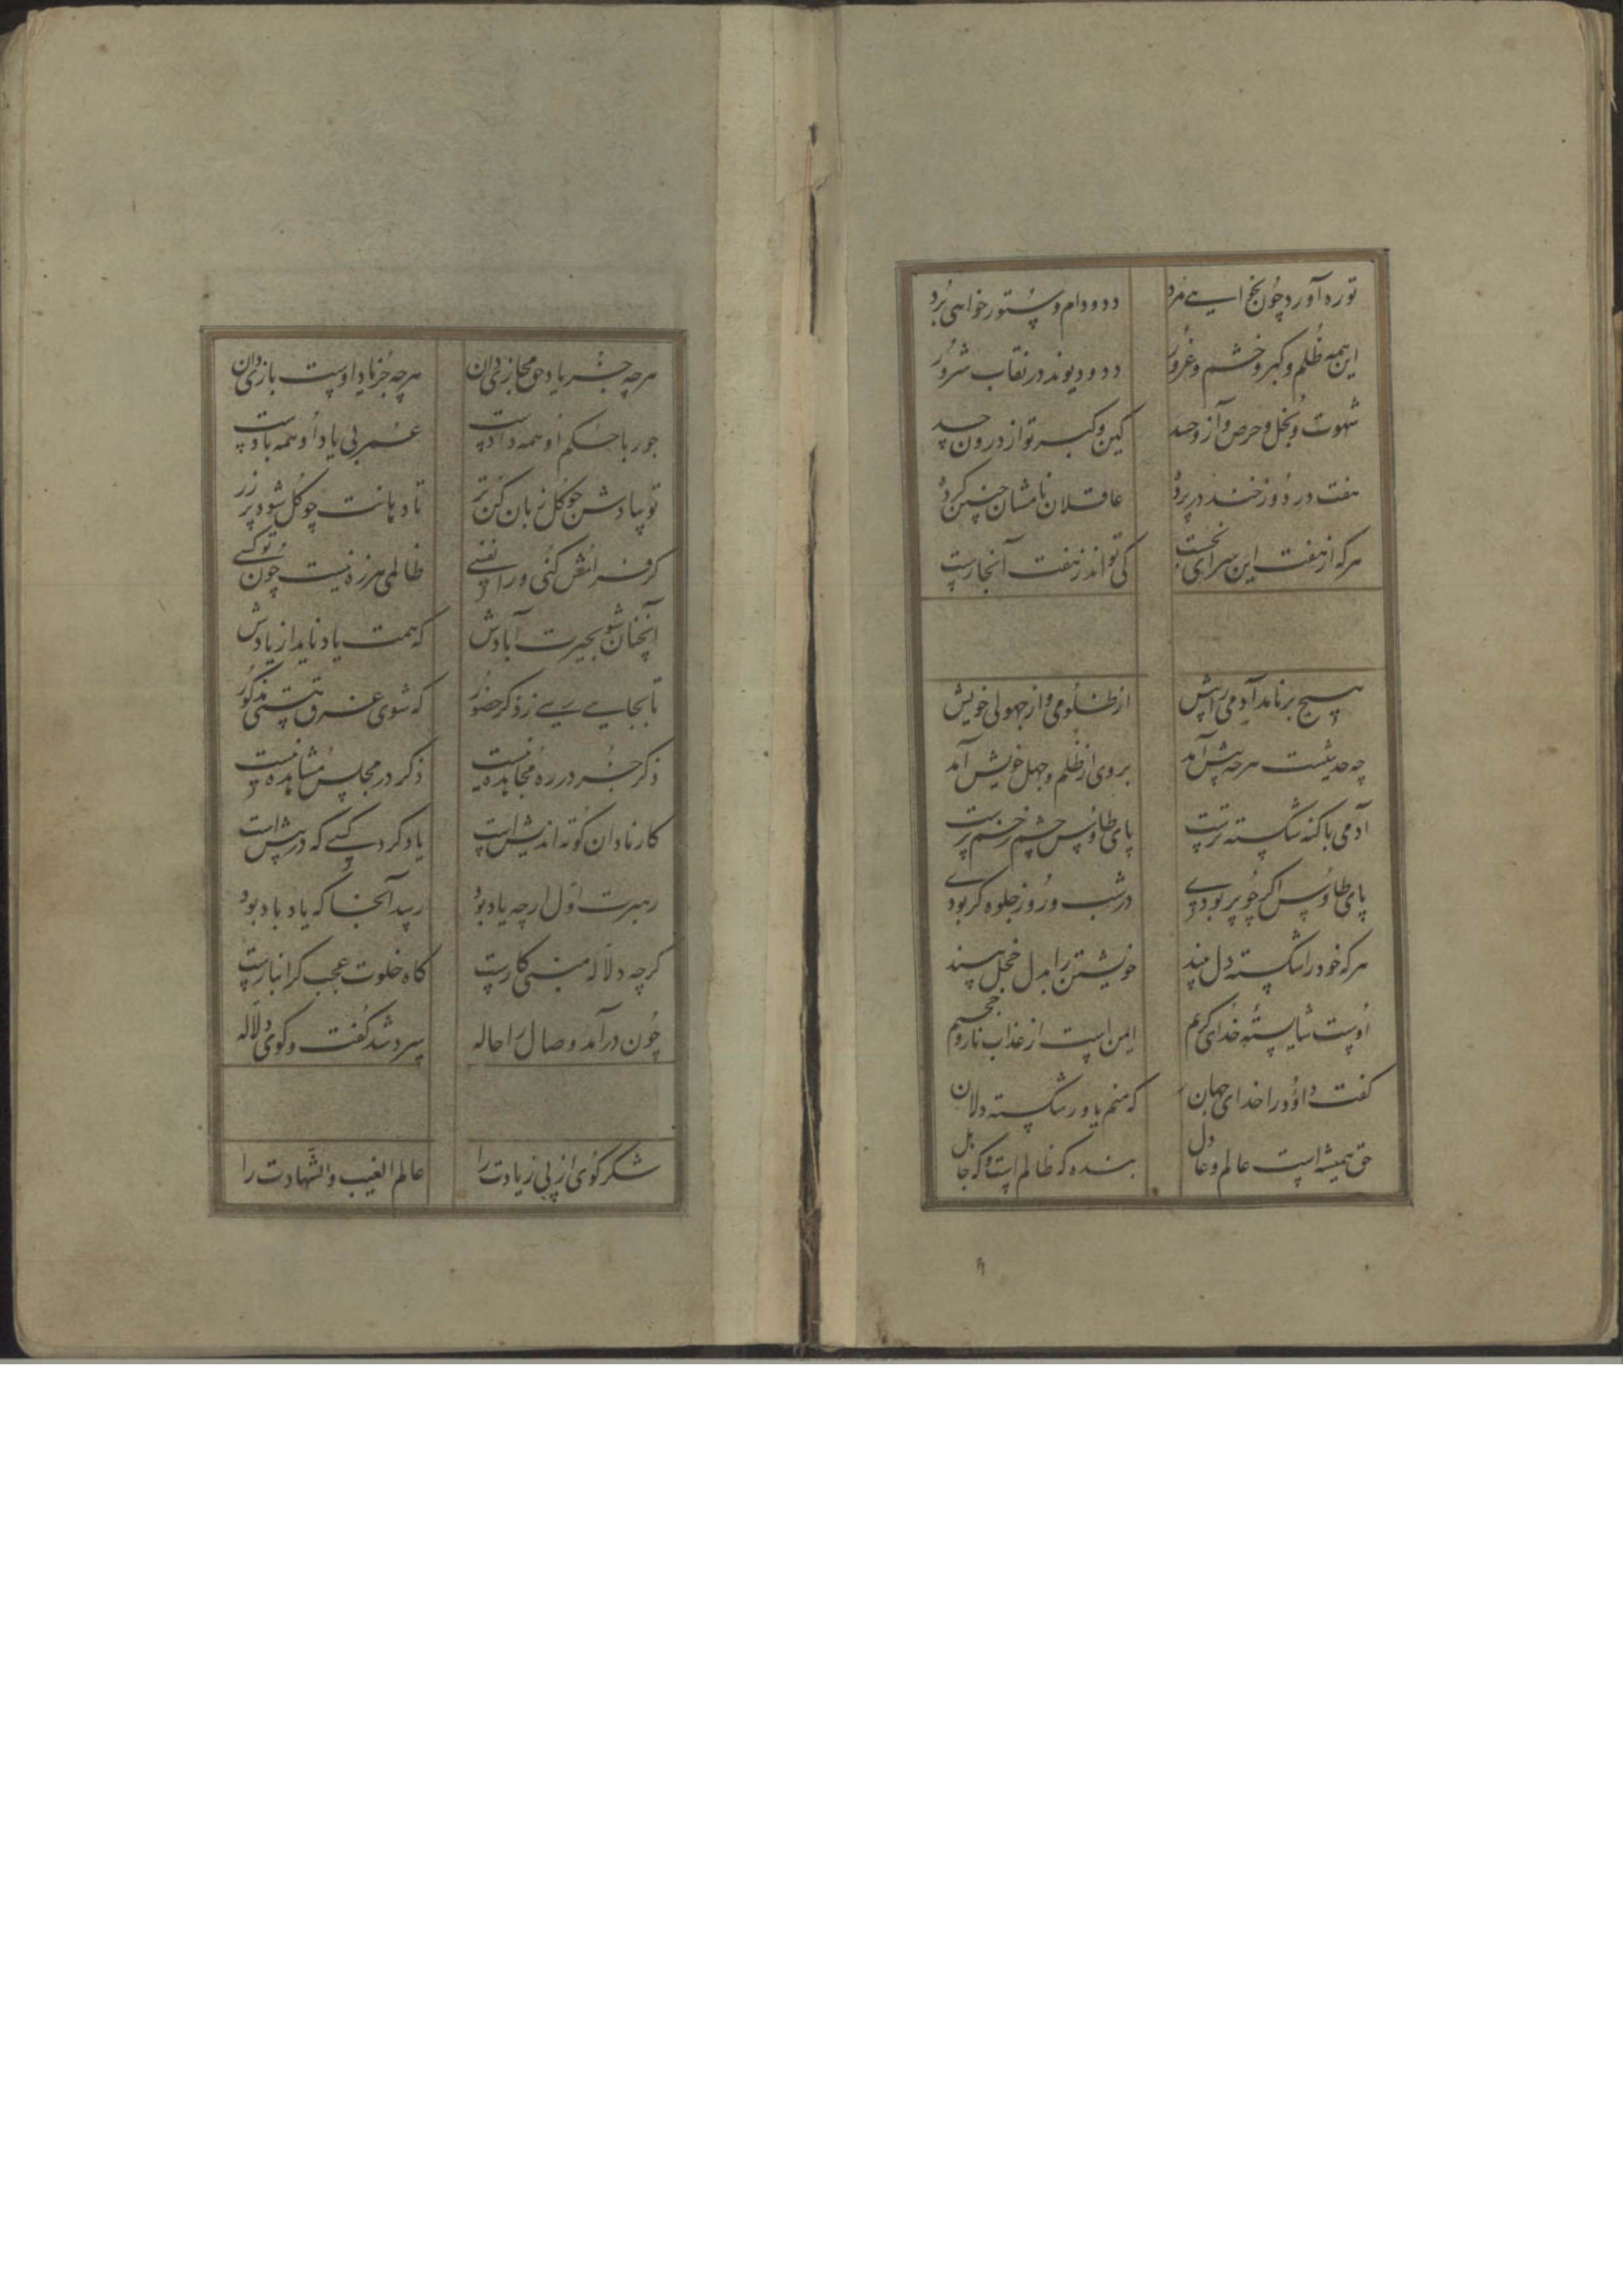 توره آورد چون نخ ای مرد دد و دام و ستور خواهی برد
این همه ظلم و کبر و خشم و غرور دد و دیوند در نقاب شرور
شهوت و بخل و حرص و آز و حسد کین و کبر تو از درون جسد
هفت در دوزخند در پرده عاقلان نامشان چنین کرده
هرکه از هفت این سرای بجست کی تواند ز هفت آنجا رست
هیچ برنامد آدمی را پیش از ظلومی و از جهولی خویش
چه حدیثست هرچه پیش آمد بروی از ظلم و جهل خویش آمد
آدمی با گنه شکسته ترست پای طاوس چشم زخم پرست
پای طاوس اگر چو پر بودی در شب و روز جلوه گر بودی
هرکه خود را شکسته دل بیند خویشتن را بدل خجل بیند
اوست شایستهٔ خدای کریم ایمن است از عذاب نار و جحیم
گفت داود را خدای جهان که منم یاور شکسته دلان
حق همیشه است عالم و عادل بنده که ظالم است و که جاهل
هرچه جز یاد حق مجازی دان هرچه جز یاد اوست بازی دان
جور با حکم او همه دادست عمر بی یاد او همه بادست
تو بیادش چو گل زبان کن تر تا دهانت چو گل شود پر زر
گر فرامش کنی ورا نفسی ظالمی هرزه نیست چون تو کسی
آنچنان شو بحیرت آبادش که همت یاد ناید از یادش
تا بجایی رسی ز ذکر حضور که شوی غرق نیستی مذکور
ذکر جز در ره مجاهده نیست ذکر در مجلس مشاهده نیست
کار نادان کوته اندیش است یاد کرد کسی که در پیش است
رهبرت اول ارچه یاد بود رسد آنجا که یاد باد بود
گرچه دلاله مهتری کارست گاه خلوت عجب گران بارست
چون درآمد وصال را حاله سرد شد گفت و گوی دلاله
شکر گوی از پی زیادت را عالم الغیب والشهادت را